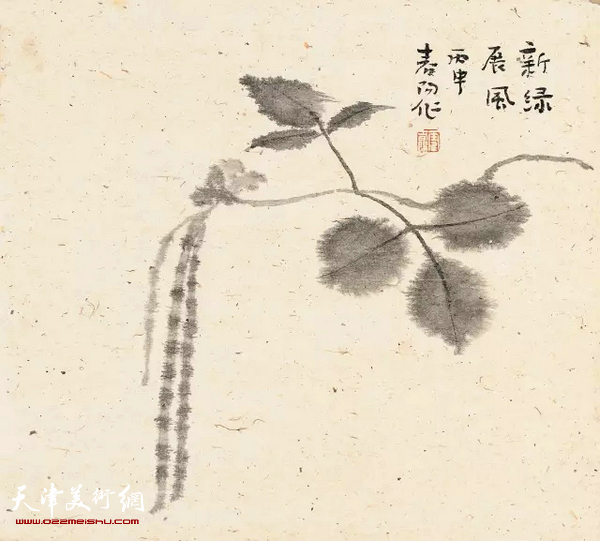 新绿
展风
丙申
春阳作
天津美術網
www.022meishu.com